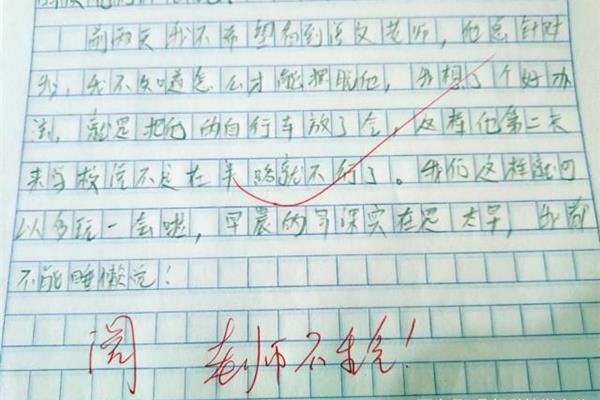 前两天我不希望看到语文老师，他总针对
我，我不知道怎么才能摆脱他，我想了个好办
法，就是把他的自行车放了气，这样他第二天
来学校说不定在半路就不行了。我们这样就可
以多玩一会啦，早晨的早课实在是太早，我都
不能睡懒觉！
阅 老师不生气！